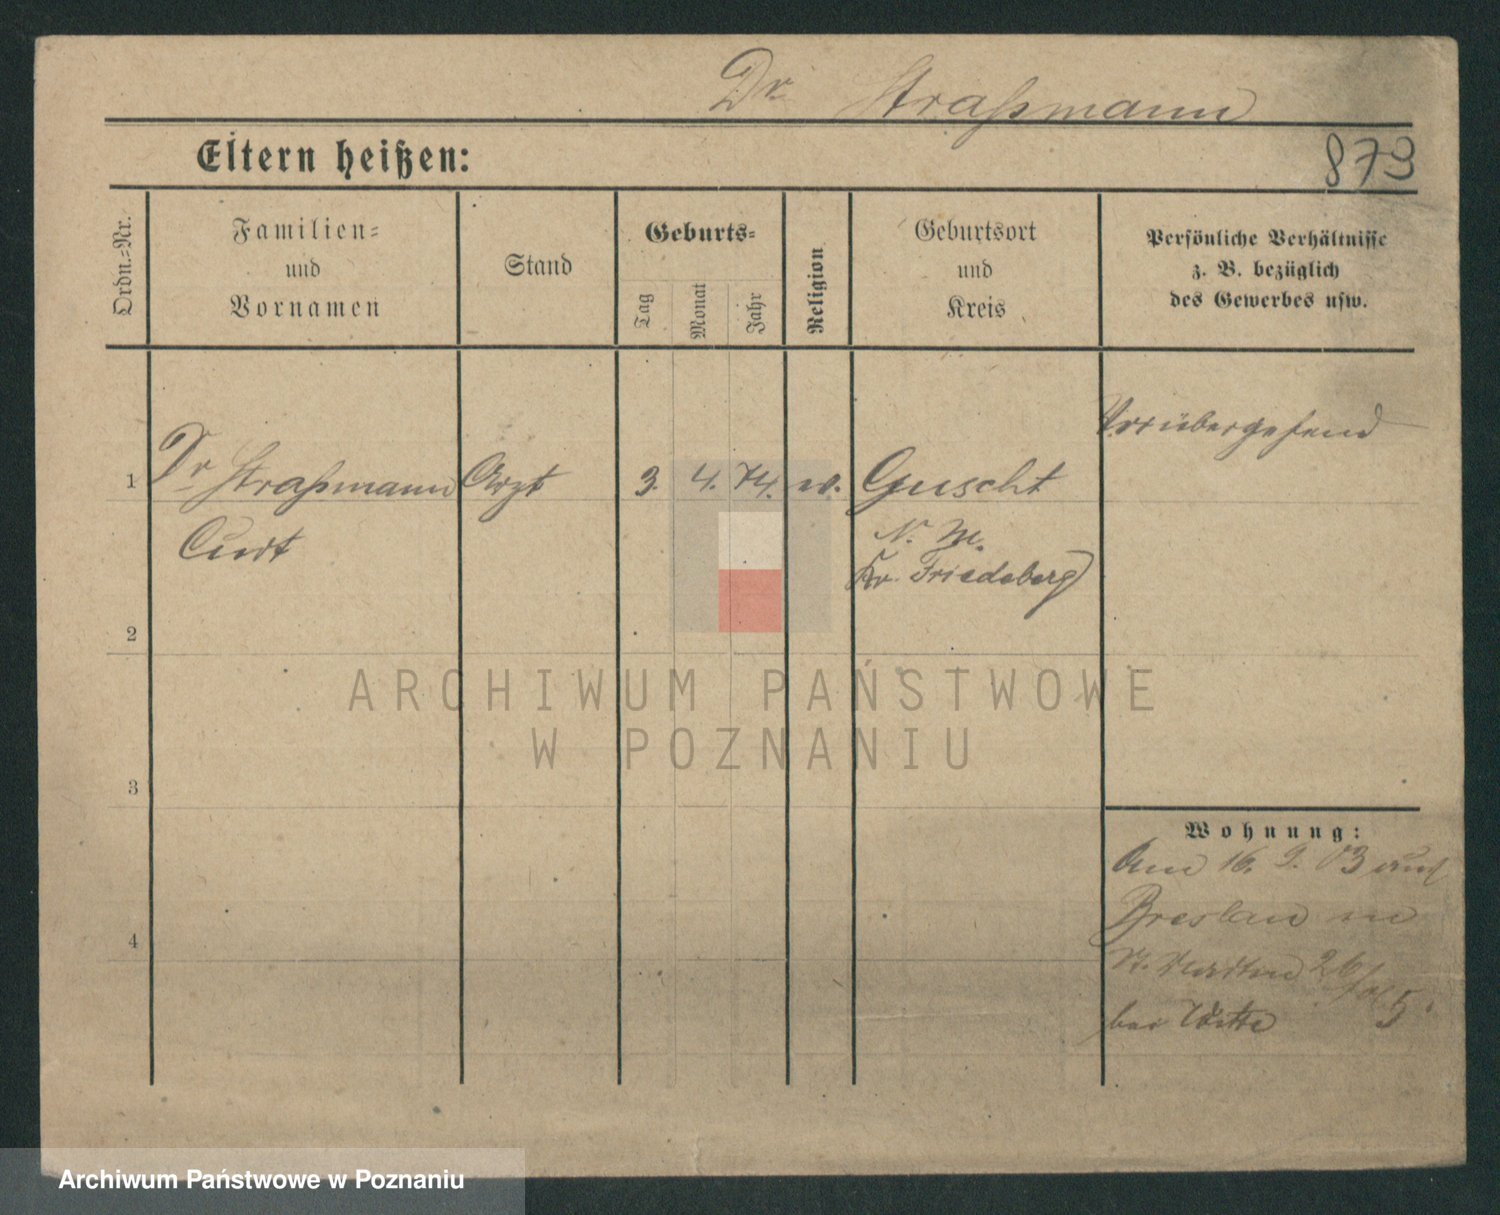 Dr Straßmann
Eltern heißen:
873
Ordn.-Nr.
Familien-
und
Vornamen
Stand
Geburts-
Tag
Monat
Jahr
Religion
Geburtsort
und
Kreis
Persönliche Verhältnisse
z. B. bezüglich
des Gewerbes usw.
Vorübergehend
1 Dr Straßmann Arzt 3. 4. 74. Guscht
Curt N. M.
Kr. Friedeberg
2
ARCHIWUM PAŃSTWOWE
W POZNANIU
3
Wohnung:
Am 16. 9. 03 aus
Breslau in
St. Martin 26
bei Witte
4
Archiwum Państwowe w Poznaniu